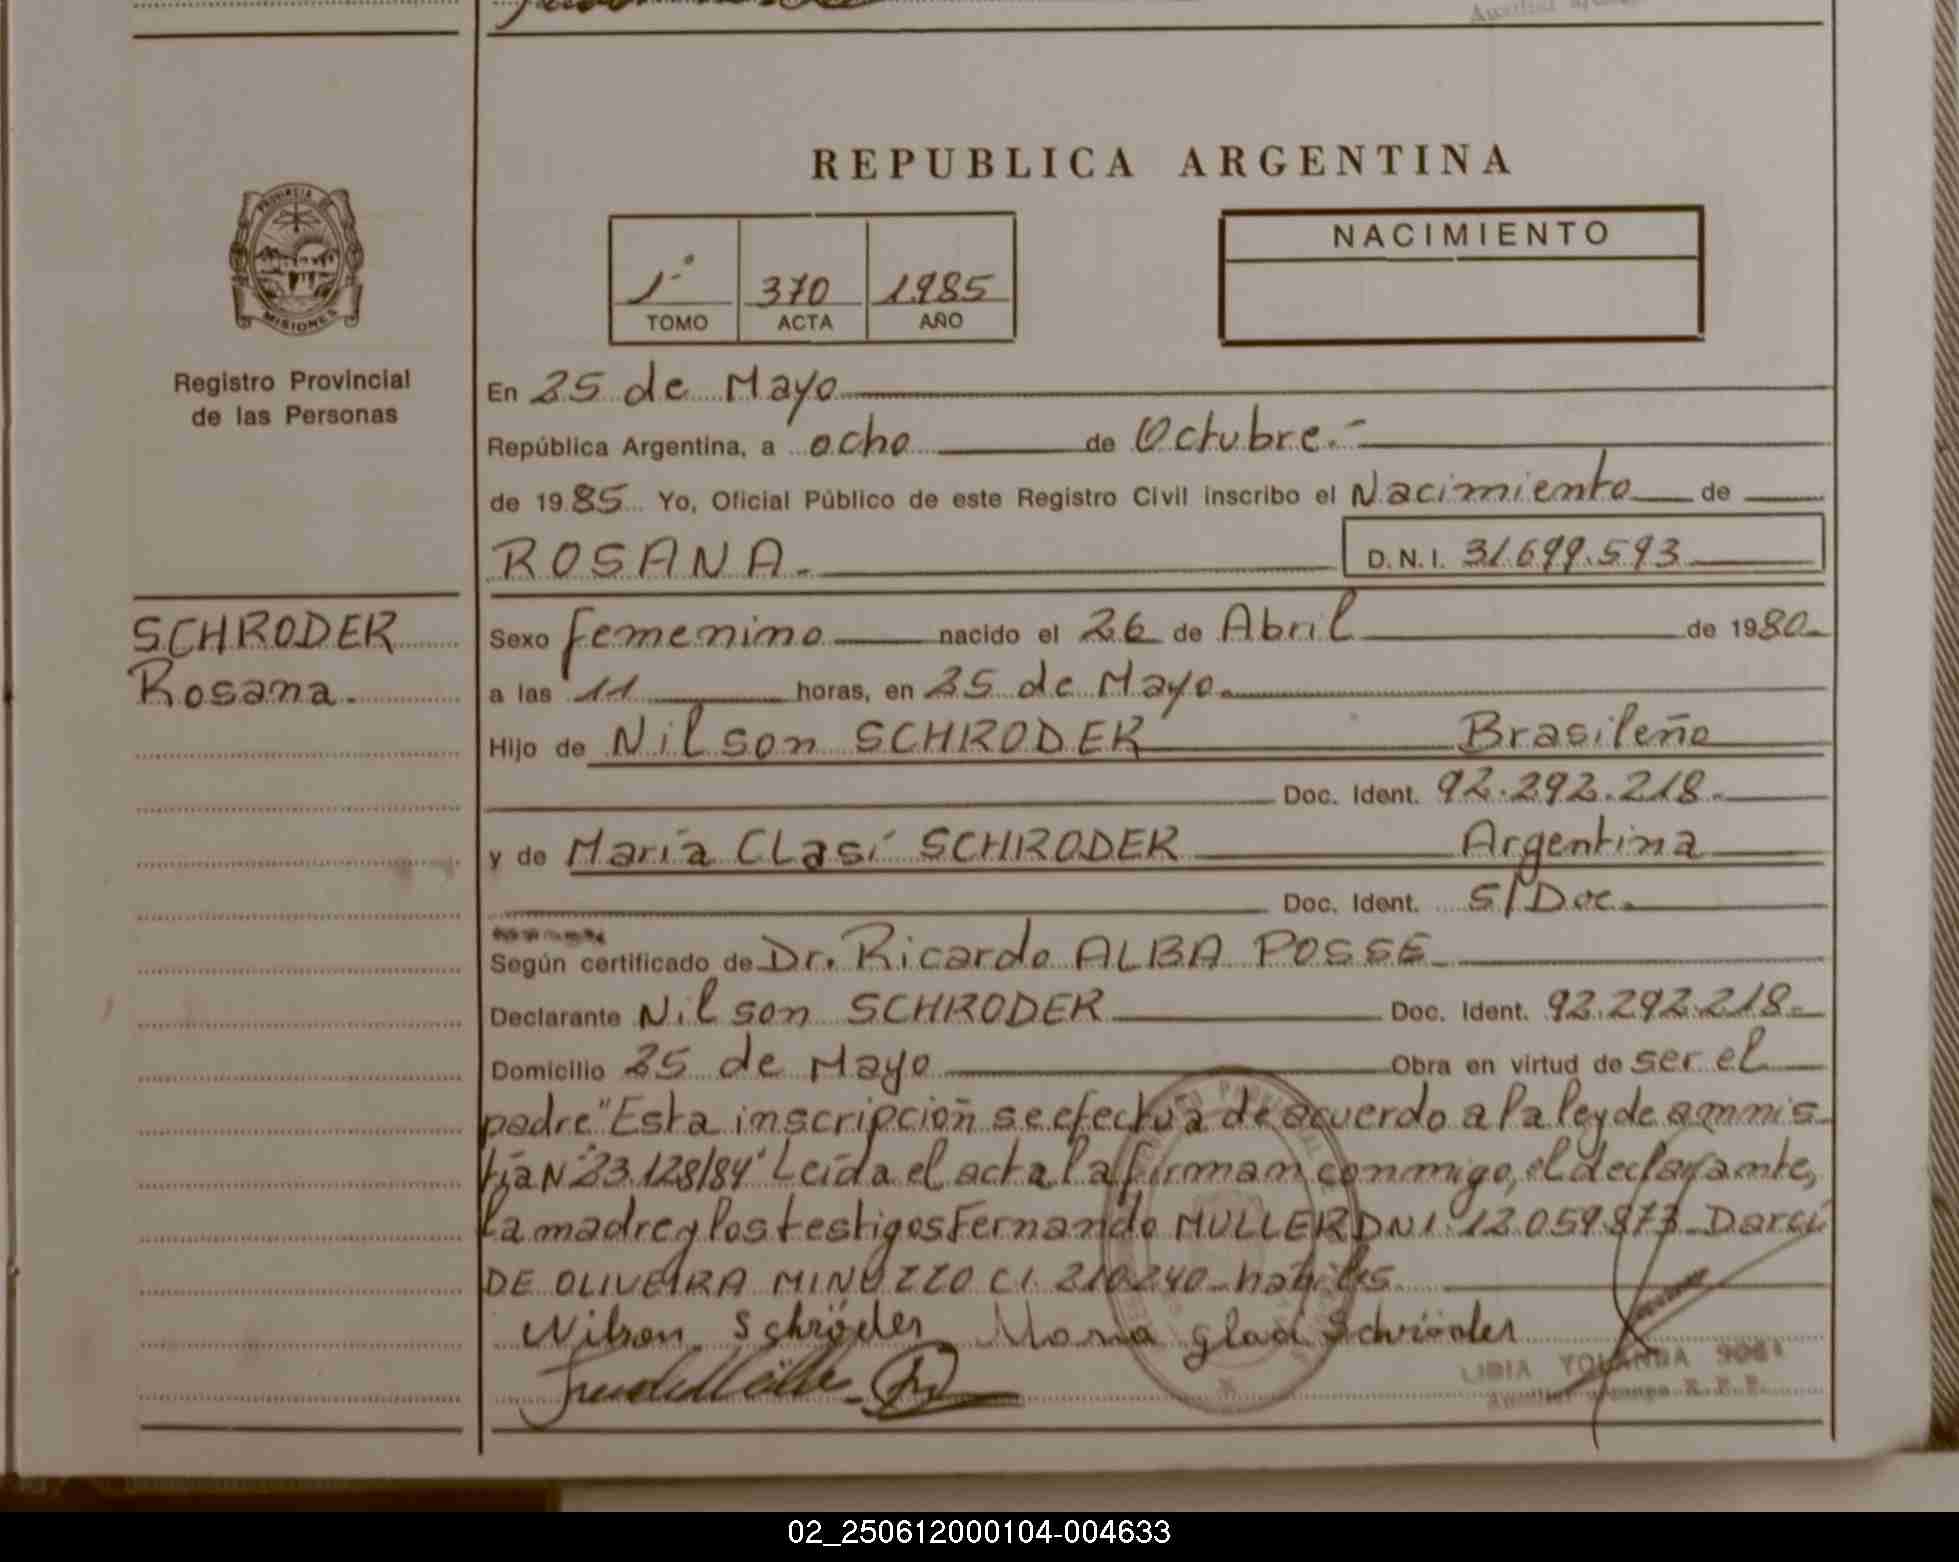 REPUBLICA ARGENTINA
PROVINCIA DE
MISIONES
Registro Provincial
de las Personas
1º 370 1985
TOMO ACTA AÑO
NACIMIENTO
En 25 de Mayo
República Argentina, a ocho de Octubre.-
de 1985 Yo, Oficial Público de este Registro Civil inscribo el Nacimiento de
ROSANA.- D.N.I. 31.699.593
SCHRODER
Rosana.
Sexo femenino nacido el 26 de Abril de 1980
a las 11 horas, en 25 de Mayo
Hijo de Nilson SCHRODER Brasileño
Doc. Ident. 92.292.218.-
y de María Clasí SCHRODER Argentina
Doc. Ident. S/Doc.
Según certificado de Dr. Ricardo ALBA POSSE
Declarante Nilson SCHRODER Doc. Ident. 92.292.218.-
Domicilio 25 de Mayo Obra en virtud de ser el
padre "Esta inscripción se efectua de acuerdo a la ley de amnis
tía Nº 23.128/84" Leída el acta la firman conmigo, el declarante,
la madre y los testigos Fernando MULLER DNI. 12.059.873 Darci
DE OLIVEIRA MINOZZO CI. 210.240 habiles
Nilson Schröder Schröder
YOLANDA